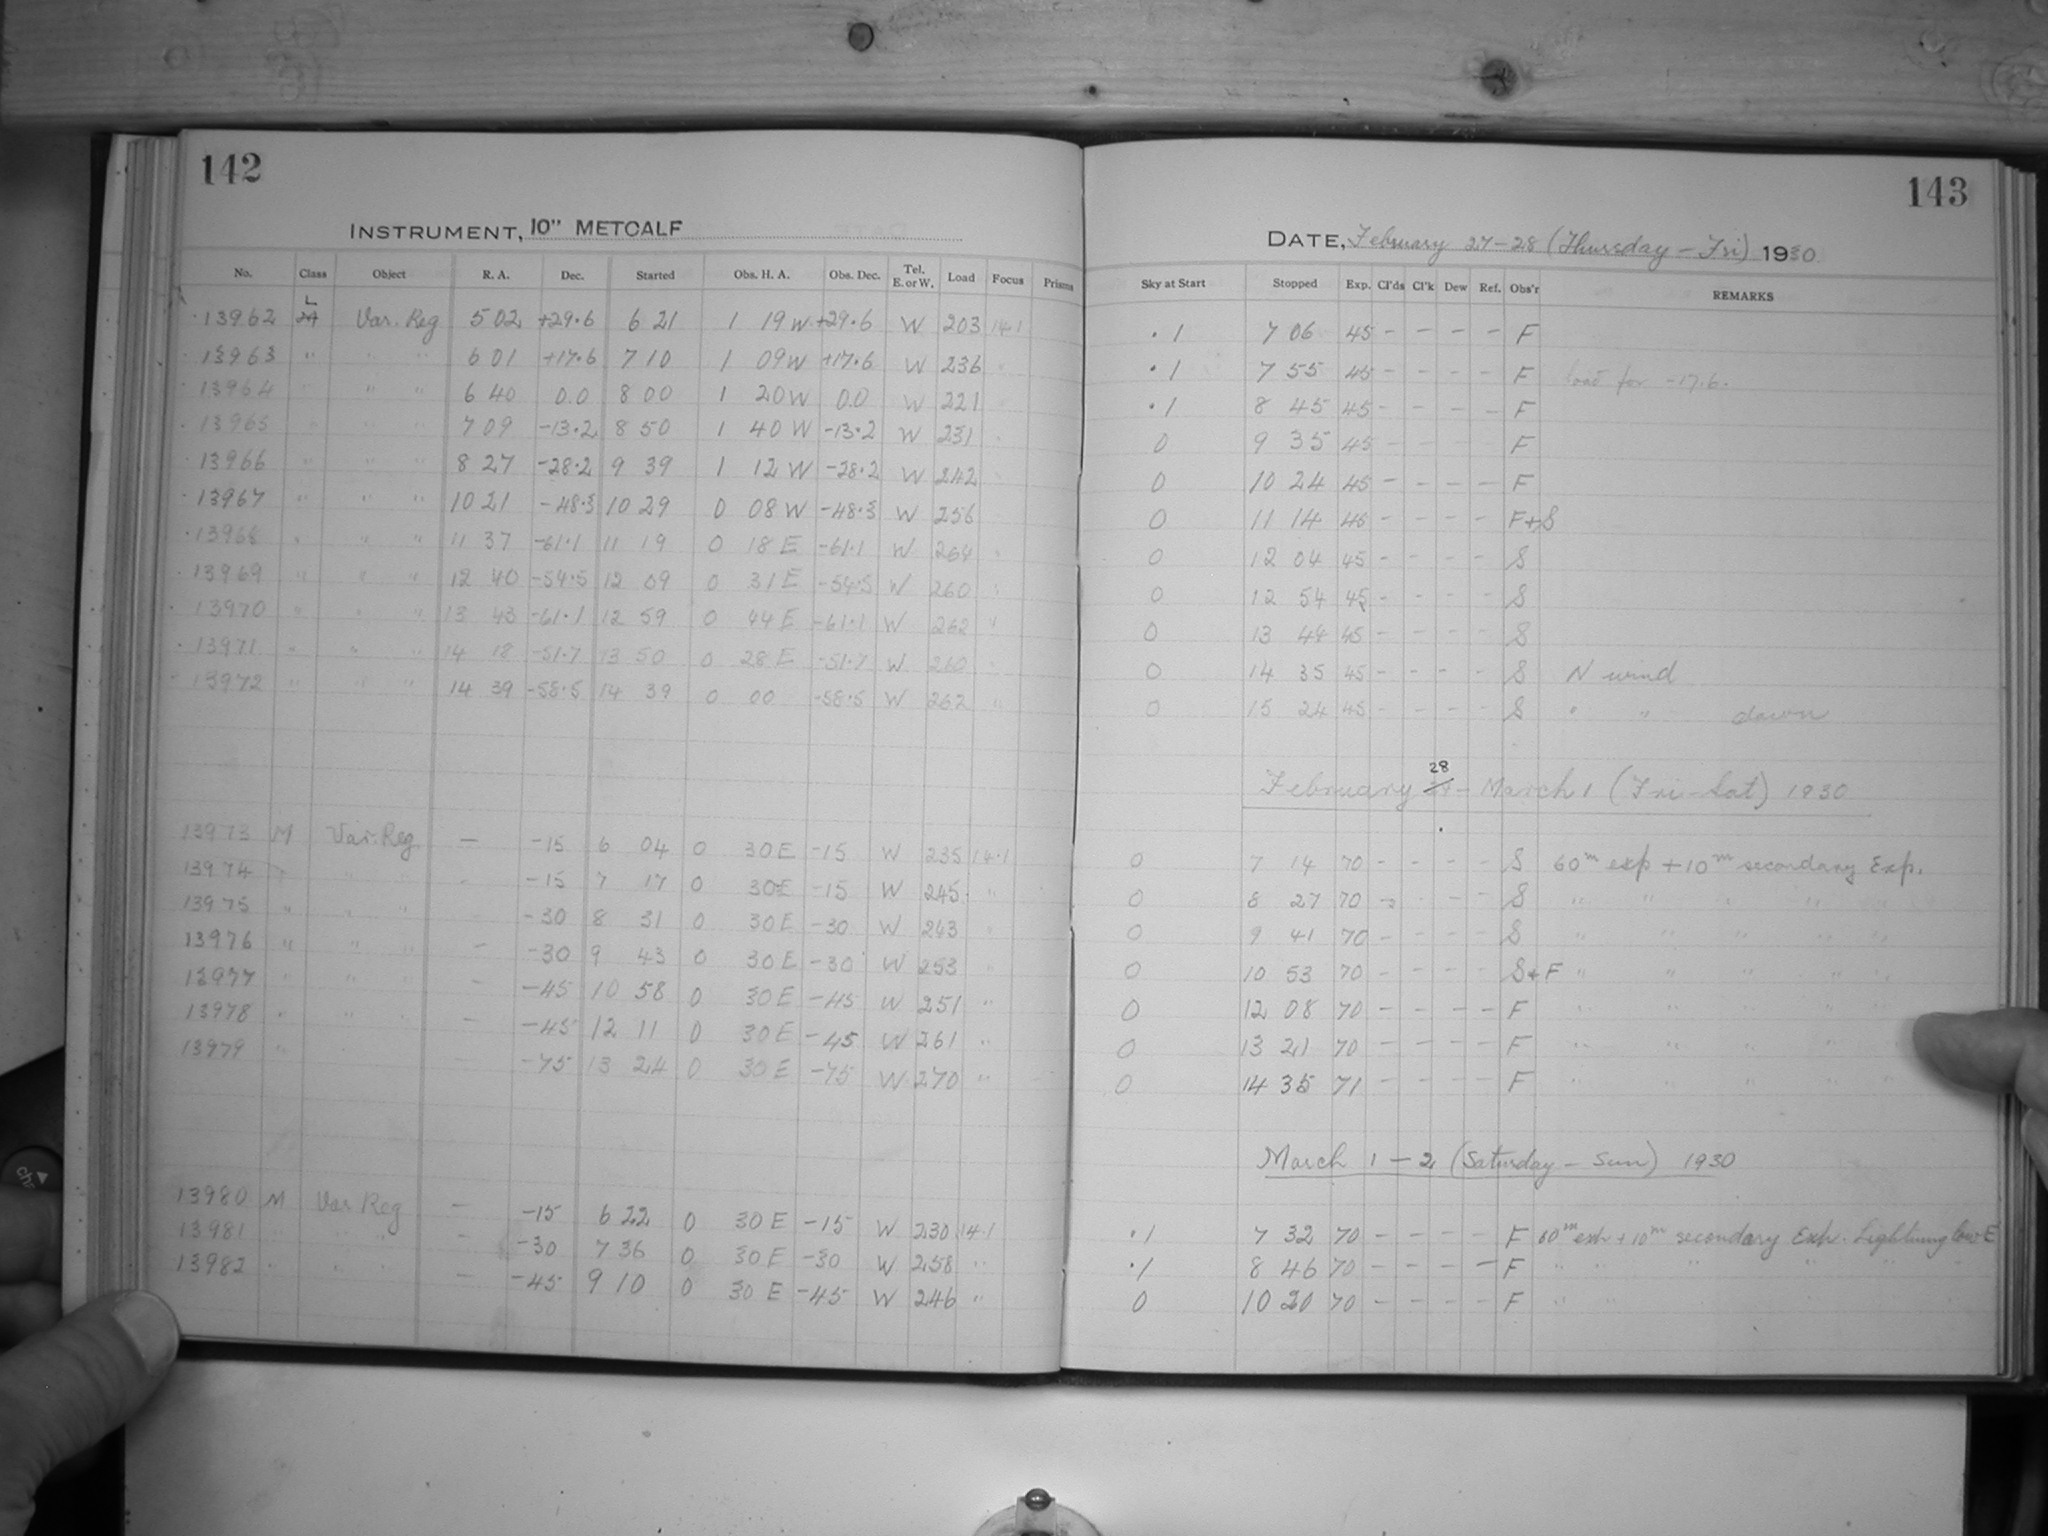 142
INSTRUMENT, 10" METCALF
No. Class Object R. A. Dec. Started Obs. H. A. Obs. Dec. Tel. E. or W. Load Focus Prisms
13962 L Var. Reg 5 02 +29.6 6 21 1 19 W +29.6 W 203 14.1
13963 " " " 6 01 +17.6 7 10 1 09 W +17.6 W 236 "
13964 " " " 6 40 0.0 8 00 1 20 W 0.0 W 221 "
13965 " " " 7 09 -13.2 8 50 1 40 W -13.2 W 231 "
13966 " " " 8 27 -28.2 9 39 1 12 W -28.2 W 242 "
13967 " " " 10 21 -48.3 10 29 0 08 W -48.3 W 256
13968 " " " 11 37 -61.1 11 19 0 18 E -61.1 W 264 "
13969 " " " 12 40 -54.5 12 09 0 31 E -54.5 W 260 "
13970 " " " 13 43 -61.1 12 59 0 44 E -61.1 W 262 "
13971 " " " 14 18 -51.7 13 50 0 28 E -51.7 W 260 "
13972 " " " 14 39 -58.5 14 39 0 00 -58.5 W 262 "
13973 M Var. Reg — -15 6 04 0 30 E -15 W 235 14.1
13974 " " " - -15 7 17 0 30 E -15 W 245 "
13975 " " " - -30 8 31 0 30 E -30 W 243 "
13976 " " " - -30 9 43 0 30 E -30 W 253 "
13977 " " - -45 10 58 0 30 E -45 W 251 "
13978 " " - -45 12 11 0 30 E -45 W 261 "
13979 " - -75 13 24 0 30 E -75 W 270 "
13980 M Var Reg — -15 6 22 0 30 E -15 W 230 14.1
13981 " " " - -30 7 36 0 30 E -30 W 258 "
13982 " " " - -45 9 10 0 30 E -45 W 246 "
143
DATE, February 27-28 (Thursday - Fri) 1930
Sky at Start Stopped Exp. Cl'ds Cl'k Dew Ref. Obs'r REMARKS
.1 7 06 45 - - - - F
.1 7 55 45 - - - - F load for -17.6.
.1 8 45 45 - - - - F
0 9 35 45 - - - - F
0 10 24 45 - - - - F
0 11 14 45 - - - - F+S
0 12 04 45 - - - - S
0 12 54 45 - - - - S
0 13 44 45 - - - - S
0 14 35 45 - - - - S N wind
0 15 24 45 - - - - S " " dawn
February 28 - March 1 (Fri-Sat) 1930
0 7 14 70 - - - - S 60m exp + 10m secondary Exp.
0 8 27 70 - - - - S " " " " "
0 9 41 70 - - - - S " " " " "
0 10 53 70 - - - - S+F " " " " "
0 12 08 70 - - - - F " " " " "
0 13 21 70 - - - - F " " " " "
0 14 35 71 - - - - F " " " " "
March 1 - 2 (Saturday - Sun) 1930
.1 7 32 70 - - - - F 60m exp + 10m secondary Exp. Lightning low E
.1 8 46 70 - - - - F " " " " " " "
0 10 20 70 - - - - F " " " "